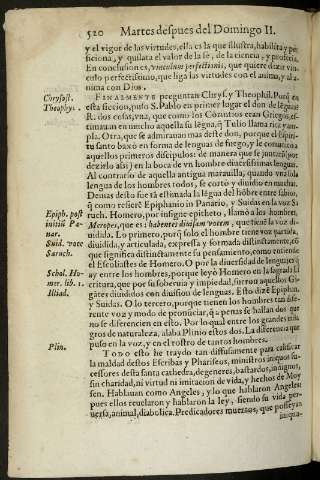 520 Martes despues del Domingo II.
y el vigor de las virtudes, ella es la que illustra, habilita y per
ficiona, y quilata el valor de la fe, de la ciencia, y profecia.
En conclusion es, vinculum perfectionis, que quiere dezir vin
culo perfectissimo, que liga las virtudes con el anima, y al a-
nima con Dios.
Chrysost.
Theophy.
FINALMENTE preguntan Chrys. y Theophil. Porq̃ en
esta feccion, puso S. Pablo en primer lugar el don de lẽguas
R. dos cosas, vna, que como los Corintios eran Griegos, es-
timauan en mucho aquella su lẽgua, q̃ Tulio llama rica y am-
pla. Otra, que se admirauan mas deste don, porque el Spiri-
tu santo baxò en forma de lenguas de fuego, y le comunicò a
aquellos primeros discipulos: de manera que se juntarõ (por
dezirlo assi) en la boca de vn hombre diuersissimas lenguas.
Al contrario de aquella antigua marauilla, quando vna sola
lengua de los hombres todos, se corto y diuidio en muchas.
Demas desto fue tã estimada la lẽgua del hõbre entre sabios,
Epiph. post
initiũ Pa-
nar.
Suid. voce
Saruch.
q̃ como refiere Epiphanio in Panario, y Suidas en la voz Sa
ruch. Homero, por insigne epicheto, llamò a los hombres,
Meropes, que es: habentes diuisam vocem, que tiene la voz di-
uidida. Lo primero, porq̃ solo el hombre tiene voz partida,
diuidida, y articulada, expressa y formada distinctamente, cõ
que significa distinctamente su pensamiento, como entiende
Schol. Ho-
mer. lib. 1.
Iliad.
el Escoliastes de Homero. O por la diuersidad de lenguajes q̃
ay entre los hombres, porque leyò Homero en la sagrada Es
critura, que por su soberuia y impiedad, fueron aquellos Gi-
gãtes diuididos con diuision de lenguas. Esto dize Epiphan.
y Suidas. O lo tercero, porque tienen los hombres tan dife-
rente voz y modo de pronũciar, q̃ a penas se hallan dos que
no se diferencien en esto. Por lo qual entre los grandes mila
Plin.
gros de naturaleza, alaba Plinio estos dos. La diferencia que
puso en la voz, y en el rostro de tantos hombres.
TODO esto he traydo tan diffusamente para calificar
la maldad destos Escribas y Phariseos, ministros iniquos su-
cessores desta santa cathedra, degeneres, bastardos, indignos,
sin charidad, ni virtud ni imitacion de vida, y hechos de Moy
sen. Hablauan como Angeles, y lo que hablaron Angeles:
pues ellos reuelaron y hablaron la ley, siendo su vida per-
uersa, animal, diabolica. Predicadores muertos, que posseyan
iniqua-